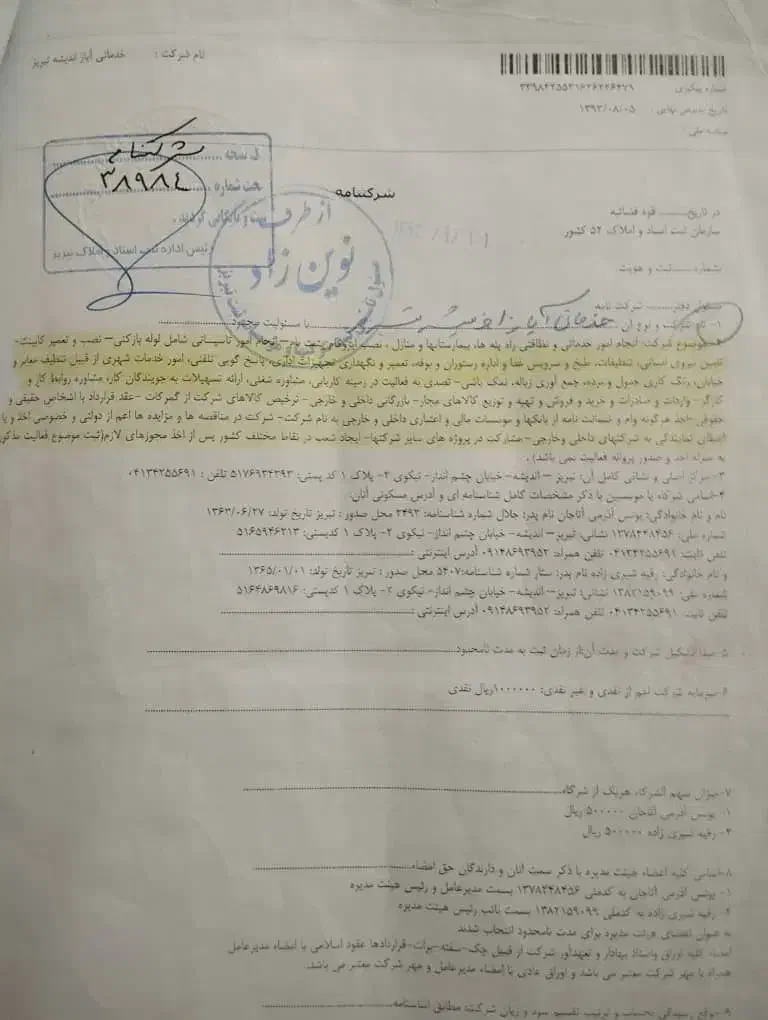 نام شرکت : خدماتی آیاز اندیشه تبریز
شماره پیگیری
۳۳۹۸۴۲۵۵۳۱۶۲۶۲۲۶۴۷۹
۱۳۹۳/۰۸/۰۵
شرکتنامه
۳۸۹۸۴
رئیس اداره ثبت اسناد و املاک تبریز
شرکتنامه
از طرف
نوین زاد
در تاریخ....... قوه قضائیه
سازمان ثبت اسناد و املاک ۵۲ کشور
شماره ثبت و هویت
۱- نام شرکت و نوع آن خدماتی آیاز اندیشه تبریز با مسئولیت محدود
۲- موضوع شرکت: انجام امور خدماتی و نظافتی راه پله ها، بیمارستانها و منازل ، انجام امور تاسیساتی شامل لوله بازکنی- نصب و تعمیر کابینت-
تامین نیروی انسانی، تنظیفات، طبخ و سرویس غذا و اداره رستوران و بوفه، تعمیر و نگهداری تجهیزات اداری، پاسخ گویی تلفنی، امور خدمات شهری از قبیل تنظیف معابر و
خیابان، رنگ کاری جدول و نرده، جمع آوری زباله، نمک پاشی- تصدی به فعالیت در زمینه کاریابی، مشاوره شغلی، ارائه تسهیلات به جویندگان کار، مشاوره روابط کار و
کارگر- واردات و صادرات و خرید و فروش و تهیه و توزیع کالاهای مجاز- بازرگانی داخلی و خارجی- ترخیص کالاهای شرکت از گمرکات -عقد قرارداد با اشخاص حقیقی و
حقوقی-اخذ هرگونه وام و ضمانت نامه از بانکها و موسسات مالی و اعتباری داخلی و خارجی به نام شرکت- شرکت در مناقصه ها و مزایده ها اعم از دولتی و خصوصی اخذ و یا
اعطای نمایندگی به شرکتهای داخلی وخارجی-مشارکت در پروژه های سایر شرکتها- ایجاد شعب در نقاط مختلف کشور پس از اخذ مجوزهای لازم(ثبت موضوع فعالیت مذکور
به منزله اخذ و صدور پروانه فعالیت نمی باشد).
۳-مرکز اصلی و نشانی کامل آن: تبریز – اندیشه-خیابان چشم انداز- نیکوی ۲- پلاک ۱ کد پستی: ۵۱۷۶۹۳۴۳۹۳ تلفن : ۰۴۱۳۴۲۵۵۶۹۱
۴-اسامی شرکاء یا موسسین با ذکر مشخصات کامل شناسنامه ای و آدرس مسکونی آنان:
نام و نام خانوادگی: یونس آذرمی آتاجان نام پدر: جلال شماره شناسنامه: ۲۴۹۳ محل صدور : تبریز تاریخ تولد: ۱۳۶۳/۰۶/۲۷
شماره ملی: ۱۳۷۸۲۴۸۴۵۶ نشانی: تبریز- اندیشه- خیابان چشم انداز- نیکوی ۲- پلاک ۱ کدپستی: ۵۱۶۵۹۴۶۲۱۳
تلفن ثابت: ۰۴۱۳۴۲۵۵۶۹۱ تلفن همراه: ۰۹۱۴۸۶۹۳۹۵۲ آدرس اینترنتی :
و نام خانوادگی: رقیه شیری زاده نام پدر: ستار شماره شناسنامه:۵۴۰۷ محل صدور : تبریز تاریخ تولد: ۱۳۶۵/۰۱/۰۱
شماره ملی: ۱۳۸۲۱۵۹۰۹۹ نشانی: تبریز- اندیشه- خیابان چشم انداز- نیکوی ۲- پلاک ۱ کدپستی: ۵۱۶۴۸۶۹۸۱۶
تلفن ثابت: ۰۴۱۳۴۲۵۵۶۹۱ تلفن همراه: ۰۹۱۴۸۶۹۳۹۵۲ آدرس اینترنتی :
۵-مبدا تشکیل شرکت و مدت آن:از زمان ثبت به مدت نامحدود
۶-سرمایه شرکت اعم از نقدی و غیر نقدی: ۱۰۰۰۰۰۰ریال نقدی
۷-میزان سهم الشرکه هریک از شرکاء
۱- یونس آذرمی آتاجان ۵۰۰۰۰۰ ریال
۲- رقیه شیری زاده ۵۰۰۰۰۰ ریال
۸-اسامی کلیه اعضاء هیئت مدیره با ذکر سمت آنان و دارندگان حق امضاء
۱- یونس آذرمی آتاجان به کدملی ۱۳۷۸۲۴۸۴۵۶ بسمت مدیرعامل و رئیس هیئت مدیره
۲- رقیه شیری زاده به کدملی ۱۳۸۲۱۵۹۰۹۹ بسمت نائب رئیس هیئت مدیره
به عنوان اعضای هیئت مدیره برای مدت نامحدود انتخاب شدند
امضاء کلیه اوراق واسناد بهادار و تعهدآور شرکت از قبیل چک-سفته-بروات-قراردادها عقود اسلامی با امضاء مدیرعامل
همراه با مهر شرکت معتبر می باشد و اوراق عادی با امضاء مدیرعامل و مهر شرکت معتبر می باشد.
۹-موقع رسیدگی بحساب و ترتیب تقسیم سود و زیان شرکت: مطابق اساسنامه